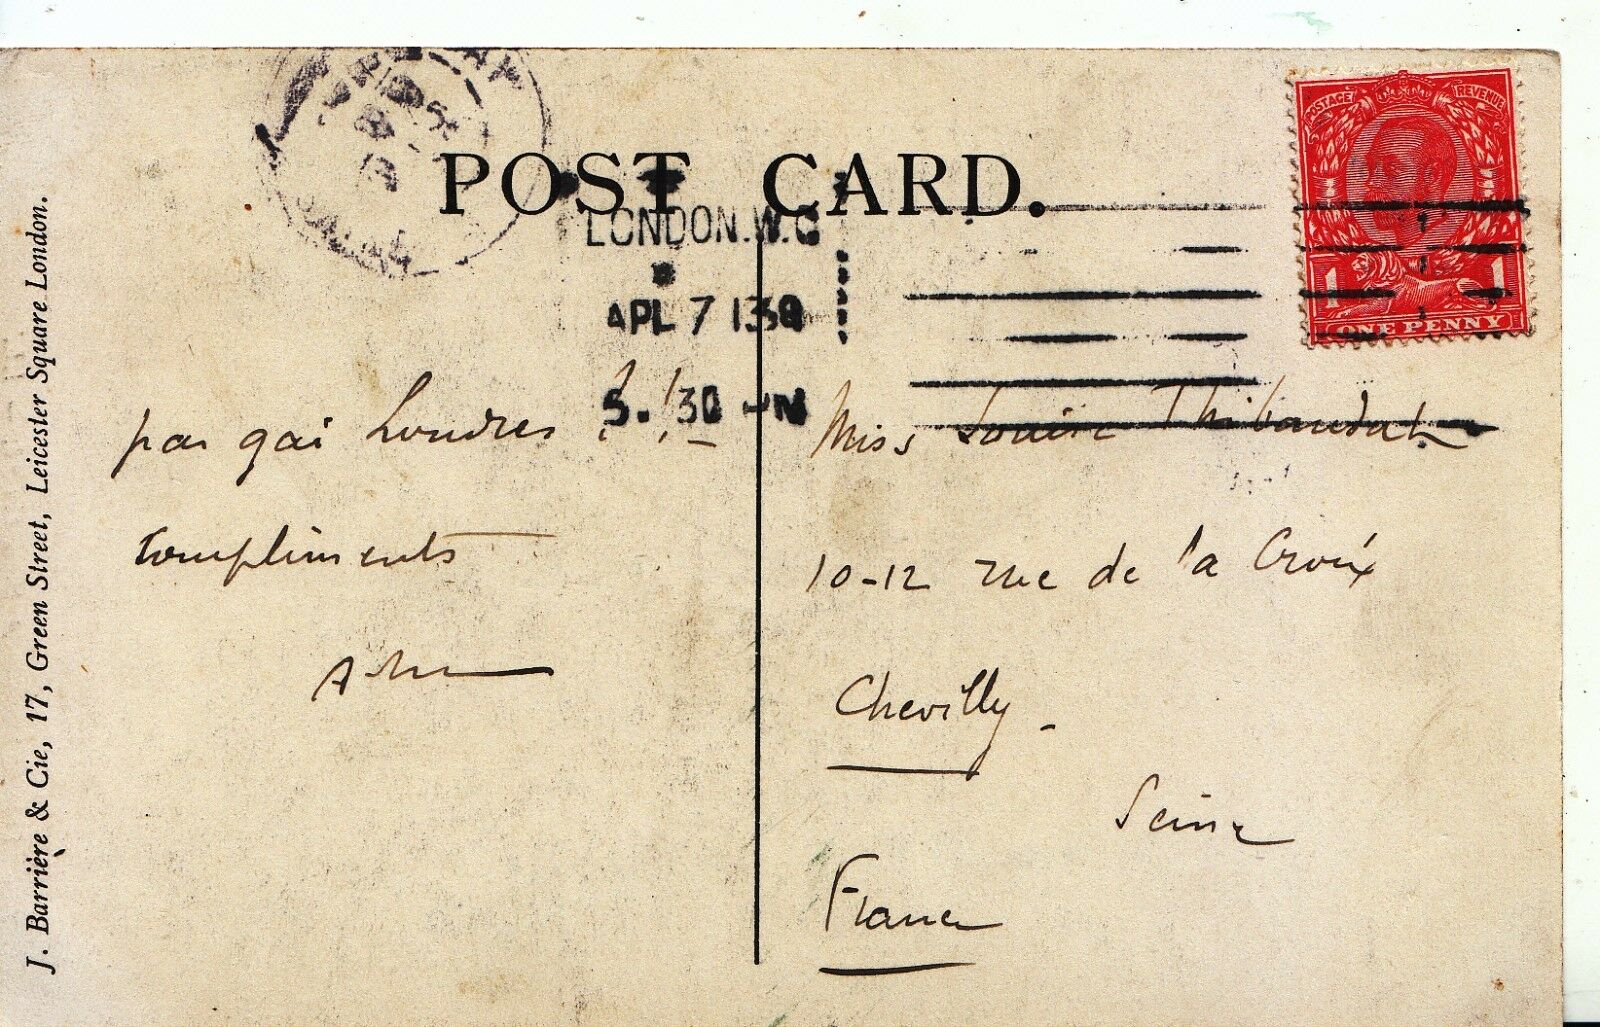 POST CARD.
LONDON.W.C
APL 7 13
5.30
POSTAGE REVENUE
1 1
ONE PENNY
pas gai Londres !.!.
Compliments
Miss Louise Thibaudat
10-12 rue de la Croix
Chevilly.
Seine
France
J. Barrière & Cie, 17, Green Street, Leicester Square London.